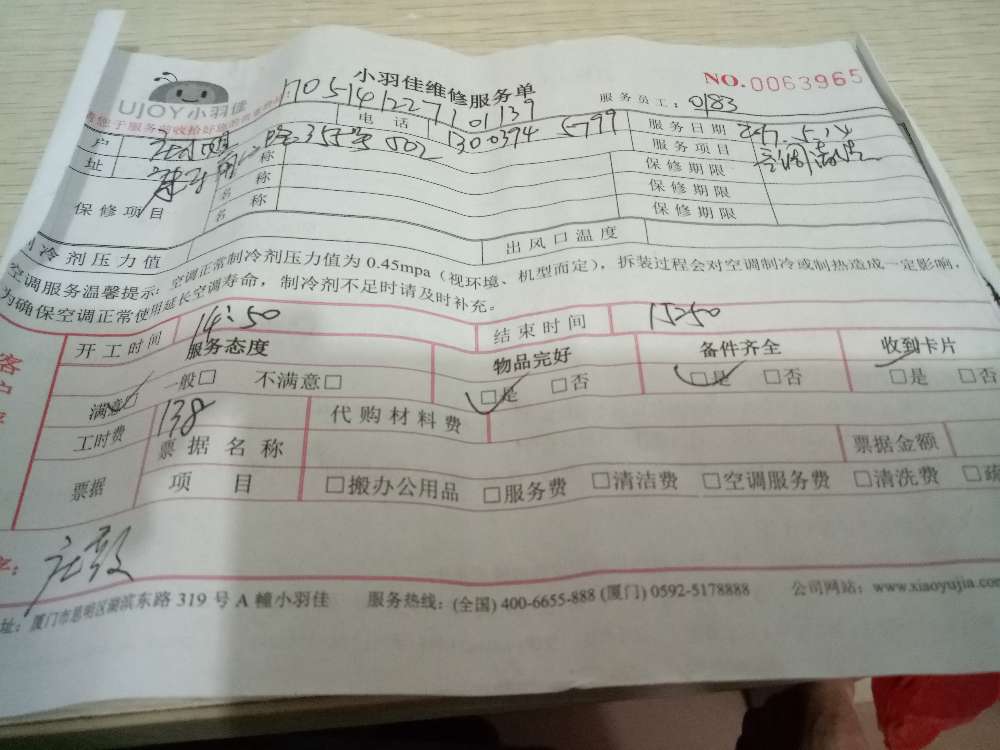 UJOY小羽佳
小羽佳维修服务单
NO.0063965
1705141227101139
服务员工：0183
户
电话
1300394 5799
服务日期
5.14
址
355号 502
服务项目
空调清洗
保修项目
名称
保修期限
名称
保修期限
名称
保修期限
制冷剂压力值
出风口温度
空调服务温馨提示：空调正常制冷剂压力值为 0.45mpa（视环境、机型而定），拆装过程会对空调制冷或制热造成一定影响，
为确保空调正常使用延长空调寿命，制冷剂不足时请及时补充。
开工时间 14:50
结束时间 15:50
客户
服务态度
物品完好
备件齐全
收到卡片
满意□ 一般□ 不满意□
□是 □否
□是 □否
□是 □否
工时费 138
代购材料费
票据
票据名称
票据金额
项目
□搬办公用品 □服务费 □清洁费 □空调服务费 □清洗费 □疏
址：厦门市思明区湖滨东路 319 号 A 幢小羽佳 服务热线：(全国) 400-6655-888 (厦门) 0592-5178888 公司网站：www.xiaoyujia.com